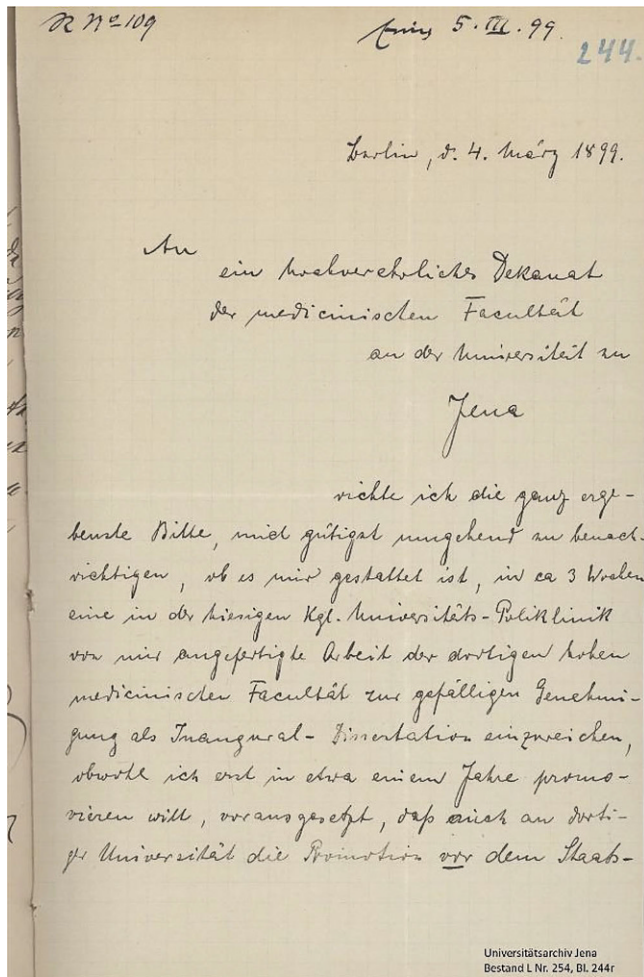 R No 109
5. III. 99.
244.
Berlin, d. 4. März 1899.
An
ein hochverehrliches Dekanat
der medicinischen Facultät
an der Universität zu
Jena
richte ich die ganz erge-
benste Bitte, mich gütigst umgehend zu benach-
richtigen, ob es mir gestattet ist, in ca 3 Wochen
eine in der hiesigen Kgl. Universitäts-Poliklinik
von mir angefertigte Arbeit der dortigen hohen
medicinischen Facultät zur gefälligen Genehmi-
gung als Inaugural-Dissertation einzureichen,
obwohl ich erst in etwa einem Jahre promo-
vieren will, vorausgesetzt, daß auch an dorti-
ger Universität die Promotion vor dem Staats-
Universitätsarchiv Jena
Bestand L Nr. 254, Bl. 244r